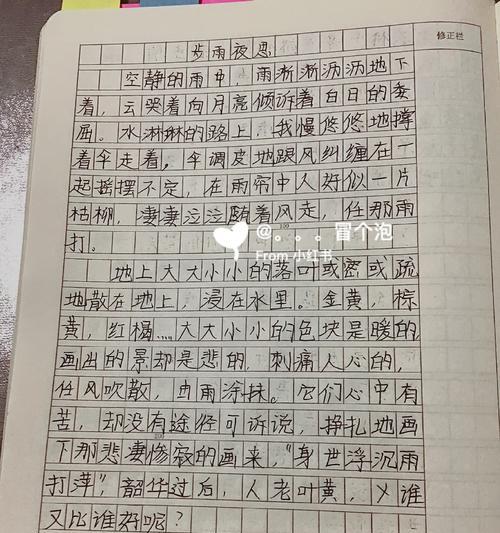 修正栏
步雨夜思
空静的雨中，雨淅淅沥沥地下
着，云哭着向月亮倾诉着白日的委
屈。水淋淋的路上，我慢悠悠地撑
着伞走着，伞调皮地跟风纠缠在一
起摇摆不定，在雨帘中人好似一片
枯柳，凄凄泣泣随着风走，任那雨
打。
100
@。。。冒个泡
From 小红书
地上大大小小的落叶或密或疏
地散在地上，浸在水里。金黄，棕
黄，红褐……大大小小的色块是暖的
画出的景却是悲的，刺痛人心的，
任风吹散，由雨涂抹。它们心中有
苦，却没有途径可诉说，挣扎地画
200
下那悲凄惨寂的画来，“身世浮沉雨
打萍”，韶华过后，人老叶黄，又谁
又比谁好呢？